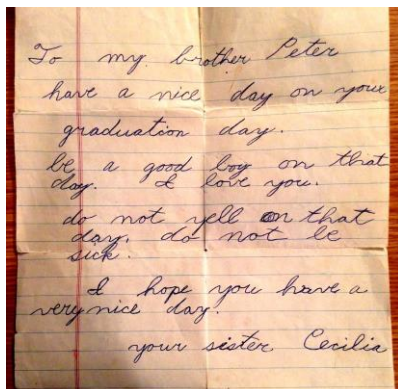 To my brother Peter
have a nice day on your
graduation day.
be a good boy on that
day. I love you.
do not yell on that
day. do not be
sick.
I hope you have a
very nice day.
your sister Cecilia